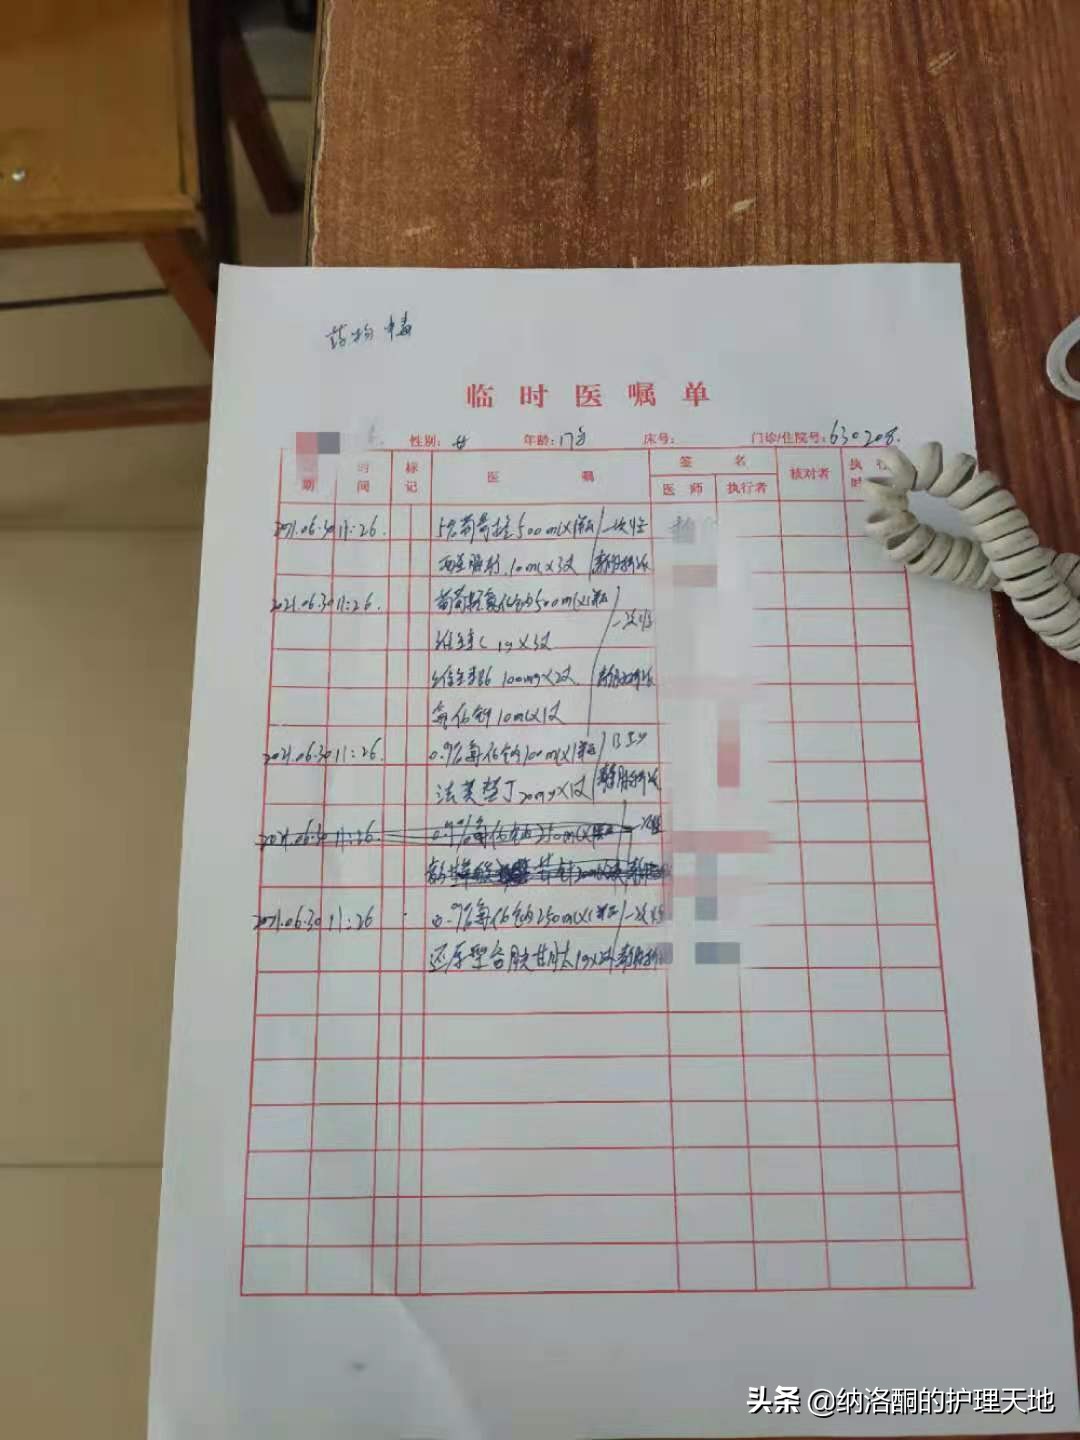 药物中毒
临时医嘱单
性别: 女 年龄: 17岁 床号: 门诊/住院号: 630208.
期 时间 标记 医嘱 签名 核对者 执行时
医师 执行者
2021.06.30 11:26. 5%葡萄糖500ml×1瓶 一次性
10ml×3支 静脉输液
2021.06.30 11:26. 葡萄糖氯化钠500ml×1瓶 一次性
维生素C 1g×3支
维生素B6 100mg×2支 静脉输液
氯化钾10ml×1支
2021.06.30 11:26. 0.9%氯化钠100ml×1瓶
法莫替丁20mg×1支 静脉输液
2021.06.30 11:26. 0.9%氯化钠250ml×1瓶
2021.06.30 11:26 0.9%氯化钠250ml×1瓶 一次性
还原型谷胱甘肽1g× 静脉输液
头条 @纳洛酮的护理天地